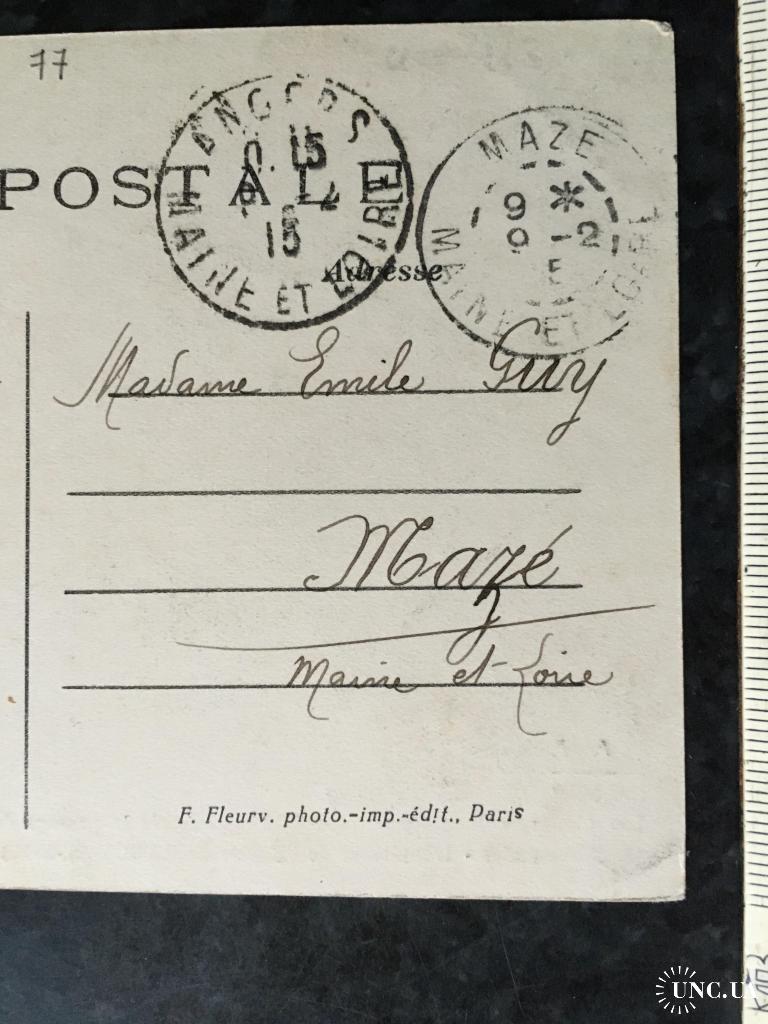 77
ANGERS
15
15
MAINE ET LOIRE
MAZE
9 *
9 - 2
MAINE ET LOIRE
POSTALE
Adresse
Madame Emile Guy
Mazé
Maine et Loire
F. Fleury. photo.-imp.-édit., Paris
UNC.UA